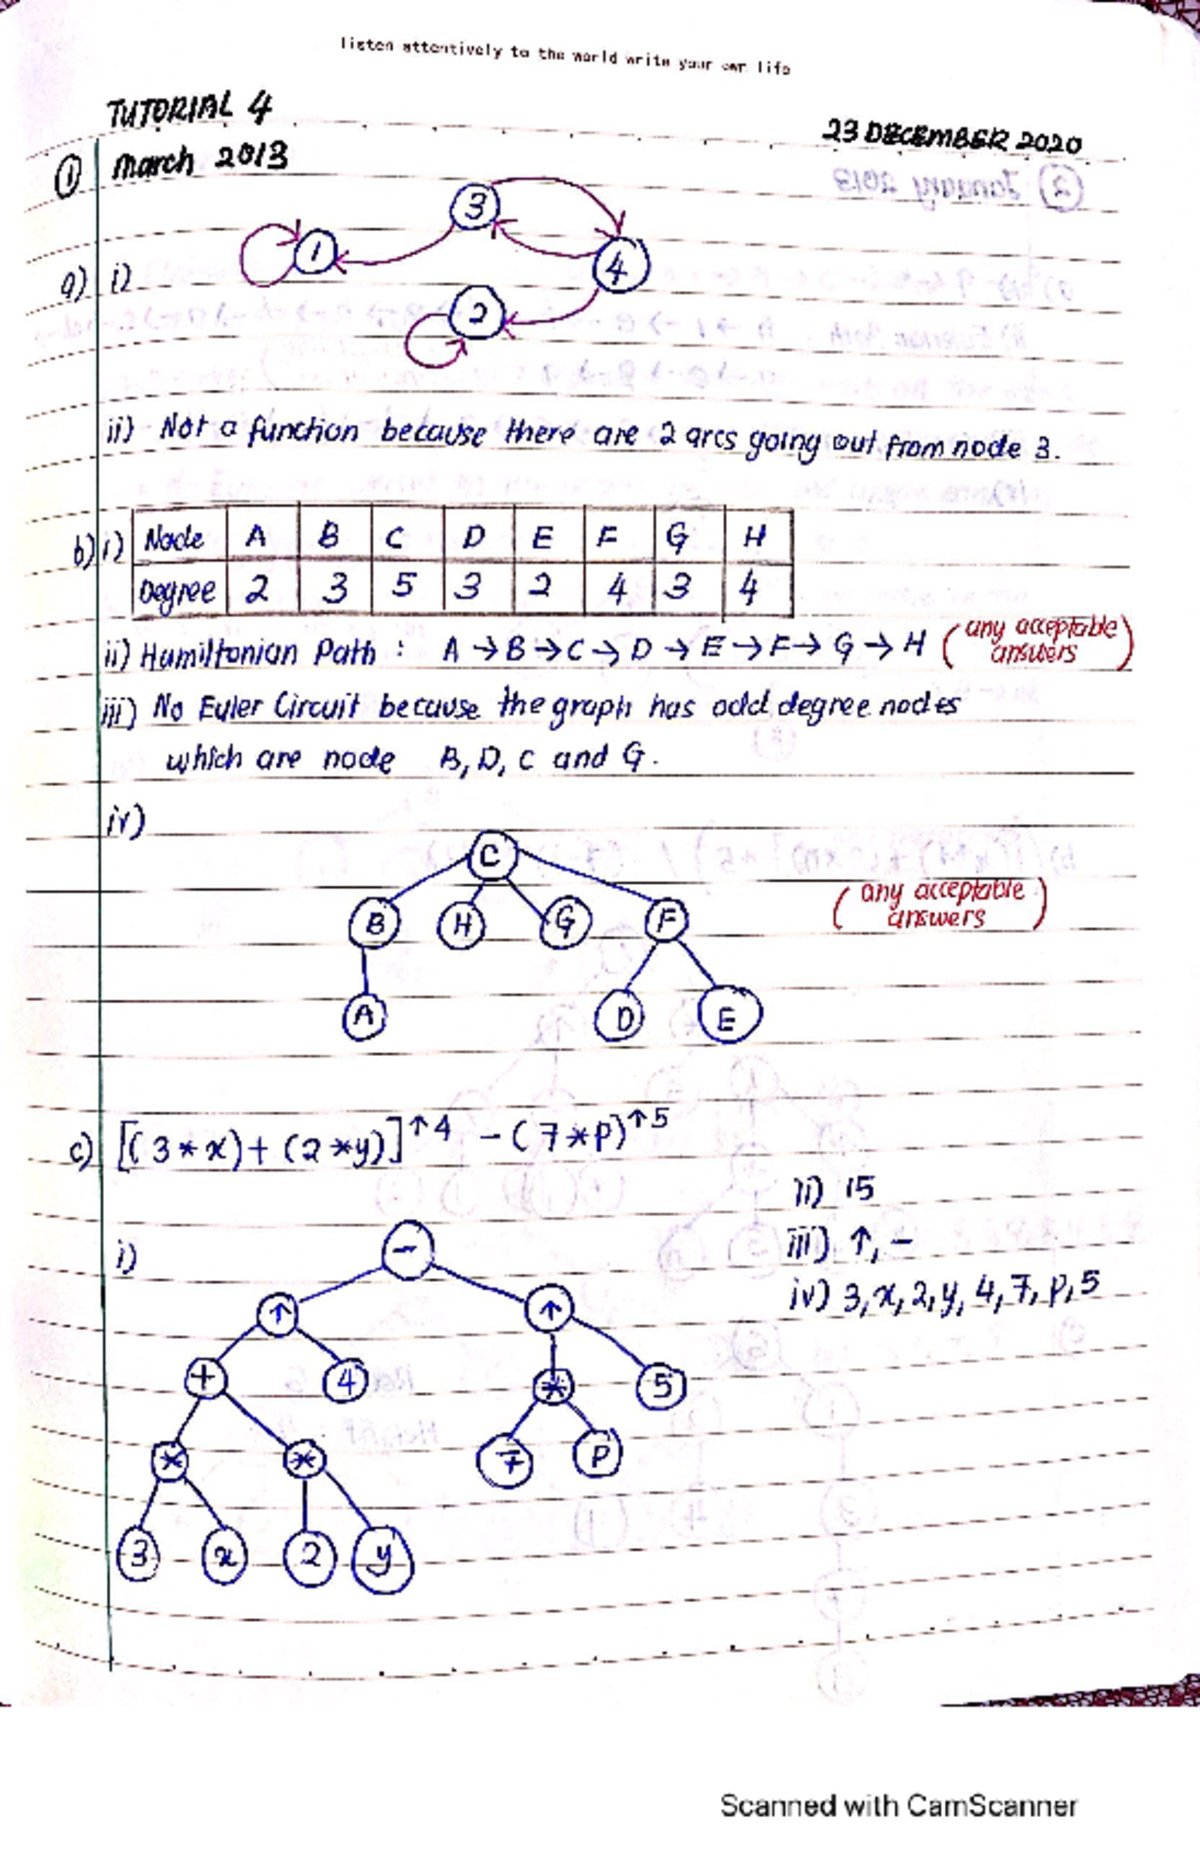 listen attentively to the world write your own life
TUTORIAL 4
23 DECEMBER 2020
① March 2013
a) i)
3
1
4
2
ii) Not a function because there are 2 arcs going out from node 3.
b) i) Node A B C D E F G H
Degree 2 3 5 3 2 4 3 4
ii) Hamiltonian Path : A → B → C → D → E → F → G → H (any acceptable answers)
iii) No Euler Circuit because the graph has odd degree nodes
which are node B, D, C and G.
iv)
C
B H G F
A D E
(any acceptable
answers)
c) [(3*x)+(2*y)]↑4 -(7*P)↑5
ii) 15
iii) ↑, -
iv) 3, x, 2, y, 4, 7, P, 5
i)
-
↑ ↑
+ 4 * 5
* * 7 P
3 x 2 y
Scanned with CamScanner